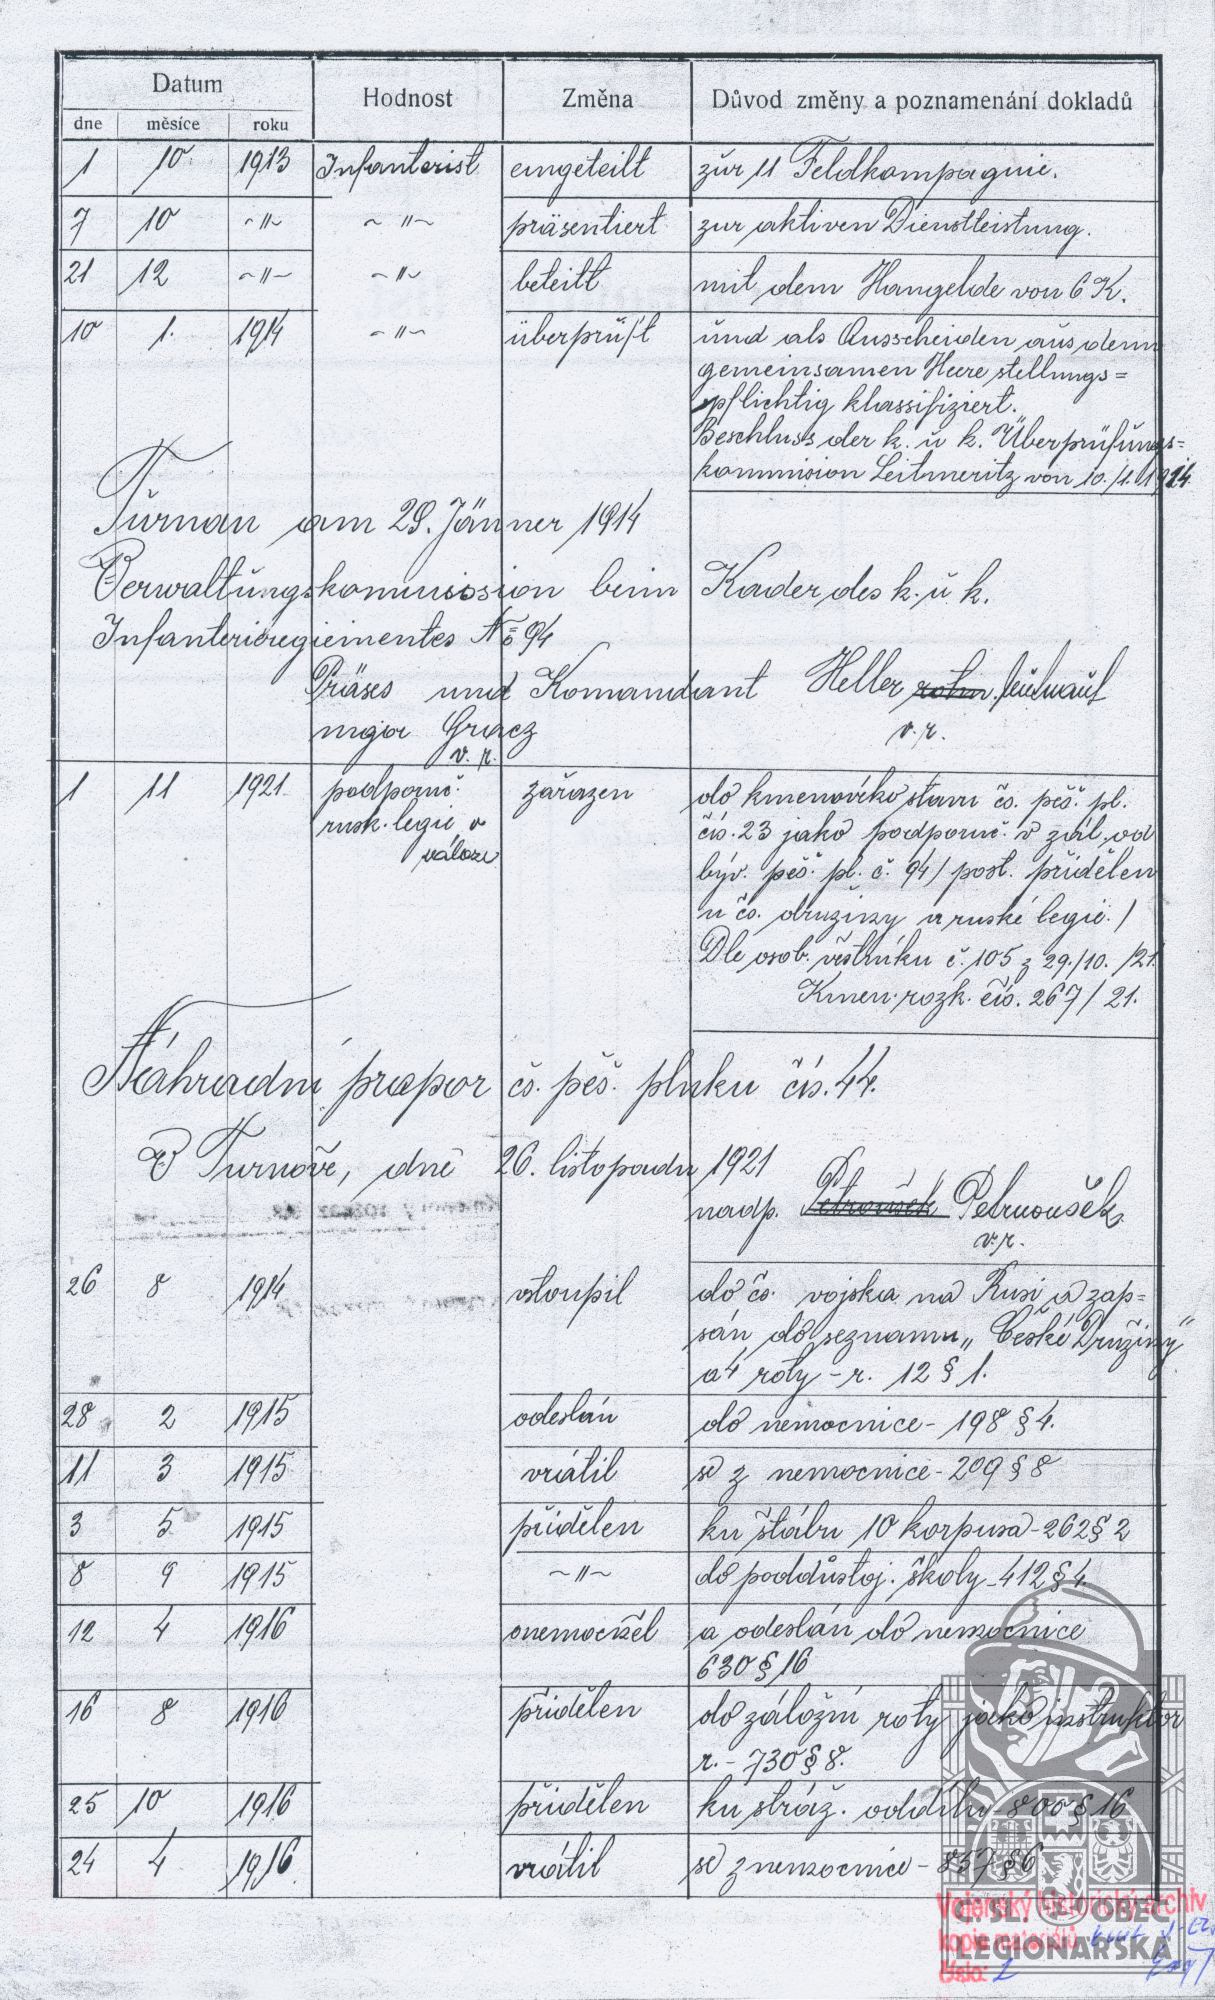 Datum Hodnost Změna Důvod změny a poznamenání dokladů
dne měsíce roku
1 10. 1913 Infanterist eingeteilt zur 11 Feldkompagnie.
7 10 ~"~ ~"~ präsentiert zur aktiven Dienstleistung.
21 12 ~"~ ~"~ beteilt mit dem Hangelde von 6 K.
10 1. 1914 ~"~ überprüft und als Ausscheiden aus dem
gemeinsamen Heere stellungs=
pflichtig klassifiziert.
Beschluss der k. u k. Überprüfungs=
kommision Leitmeritz von 10./1. 1914
Turnau am 29. Jänner 1914
Verwaltungskommission beim Kader des k. u. k.
Infanterieregiementes No 94
Präses und Komandant Heller
major Gracz v. r.
v. r.
1 11 1921. podporuč. zařazen do kmenového stavu čs. pěš. pl.
rusk. legií v čís. 23 jako podporuč. v zál. od
záloze býv. pěš. pl. č. 94 / post. přidělen
u čs. družiny a ruské legie. /
Dle osob. věstníku č. 105 z 29./10. /21.
Kmen. rozk. čís. 267/21.
Náhradní prapor čs. pěš. pluku čís. 44.
V Turnově, dne 26. listopadu 1921
nadp. Petroušek Petroušek
v. r.
26 8 1914 vstoupil do čs. vojska na Rusi a zap=
sán do seznamu „České Družiny"
a 4 roty - r. 12 § 1.
28 2 1915 odeslán do nemocnice - 198 § 4.
11 3 1915 vrátil se z nemocnice - 209 § 8
3 5 1915 přidělen ku štábu 10 korpusa - 262 § 2
8 9 1915 ~"~ do poddůstoj. školy - 412 § 4
12 4 1916 onemocněl a odeslán do nemocnice
630 § 16
16 8 1916 přidělen do záložní roty jako instruktor
r. - 730 § 8.
25 10 1916 přidělen ku stráž. oddílu - 800 § 16
24 4 1916. vrátil se z nemocnice - 857 § 6
Vojenský historický archiv
kopie materiálů
Číslo: 2
Č. SL. OBEC
LEGIONÁŘSKÁ